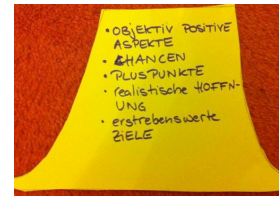 • OBJEKTIV POSITIVE
ASPEKTE
• CHANCEN
• PLUSPUNKTE
• realistische HOFFN-
UNG
• erstrebenswerte
ZIELE